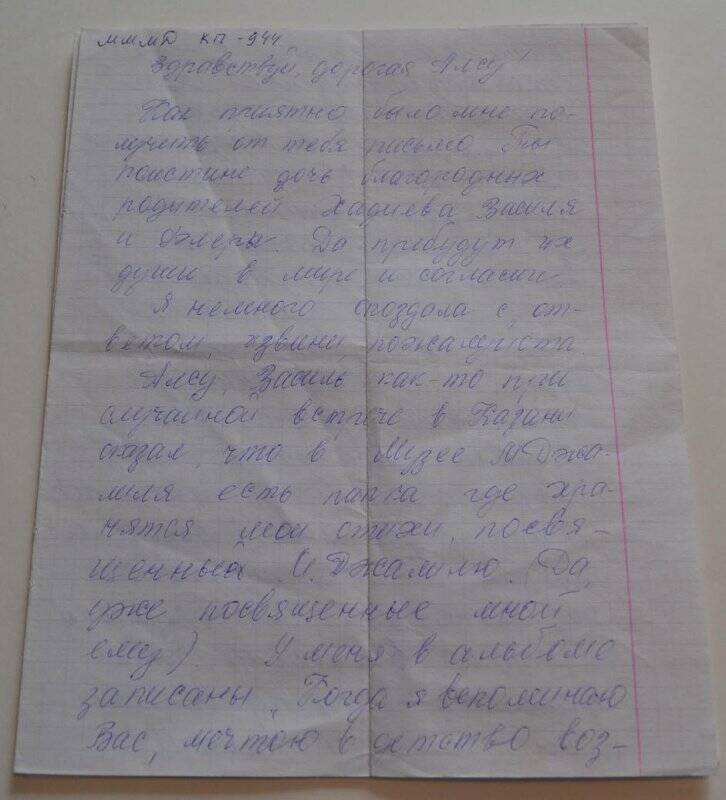 МММД КП-944
Здравствуй, дорогая Алсу!
Как приятно было мне по-
лучить от тебя письмо. Ты
поистине дочь благородных
родителей Хадиева Засиля
и Флеры. Да пребудут их
души в мире и согласии.
Я немного опоздала с от-
ветом, извини, пожалуйста.
Алсу, Засиль как-то при
случайной встрече в Казани
сказал, что в Музее М Джа-
лиля есть папка где хра-
нятся мои стихи, посвя-
щенный М. Джалилю. (Да,
уже посвященные мной
ему) У меня в альбоме
записаны „Когда я вспоминаю
Вас, мечтою в детство воз-